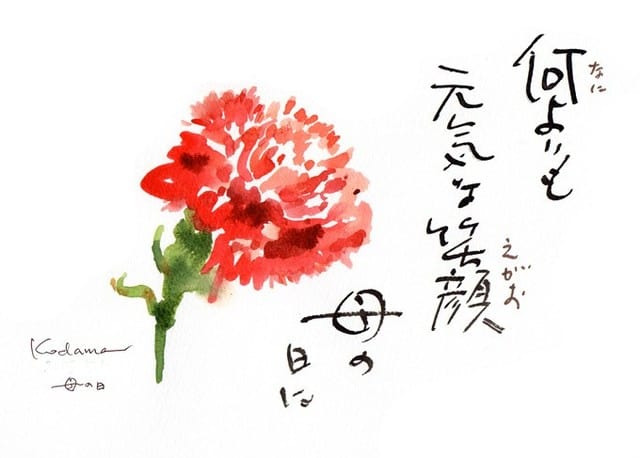 何よりも
なに
元気な笑顔
えがお
母の
日に
Kodama
母の日